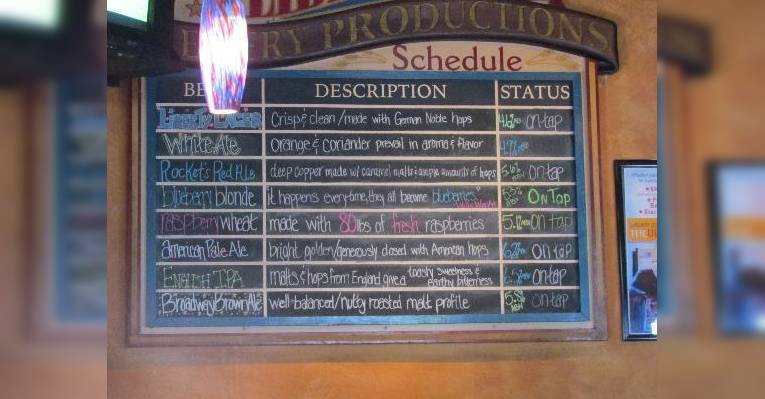 PRODUCTIONS
Schedule
DESCRIPTION STATUS
Crisp & clean / made with German Noble hops on-tap
White Ale Orange & coriander prevail in aroma & flavor
Rocket's Red Ale deep copper made w/ caramel malts & ample amounts of hops on tap
blueberry blonde it happens everytime, they all become blueberries" On Top
raspberry wheat made with 80 lbs of fresh raspberries on tap
american Pale Ale bright golden/generously dosed with American hops on tap
English IPA malts & hops from England give a toasty sweetness & earthy bitterness on-tap
Broadway Brown Ale well-balanced/nutty roasted malt profile on-tap